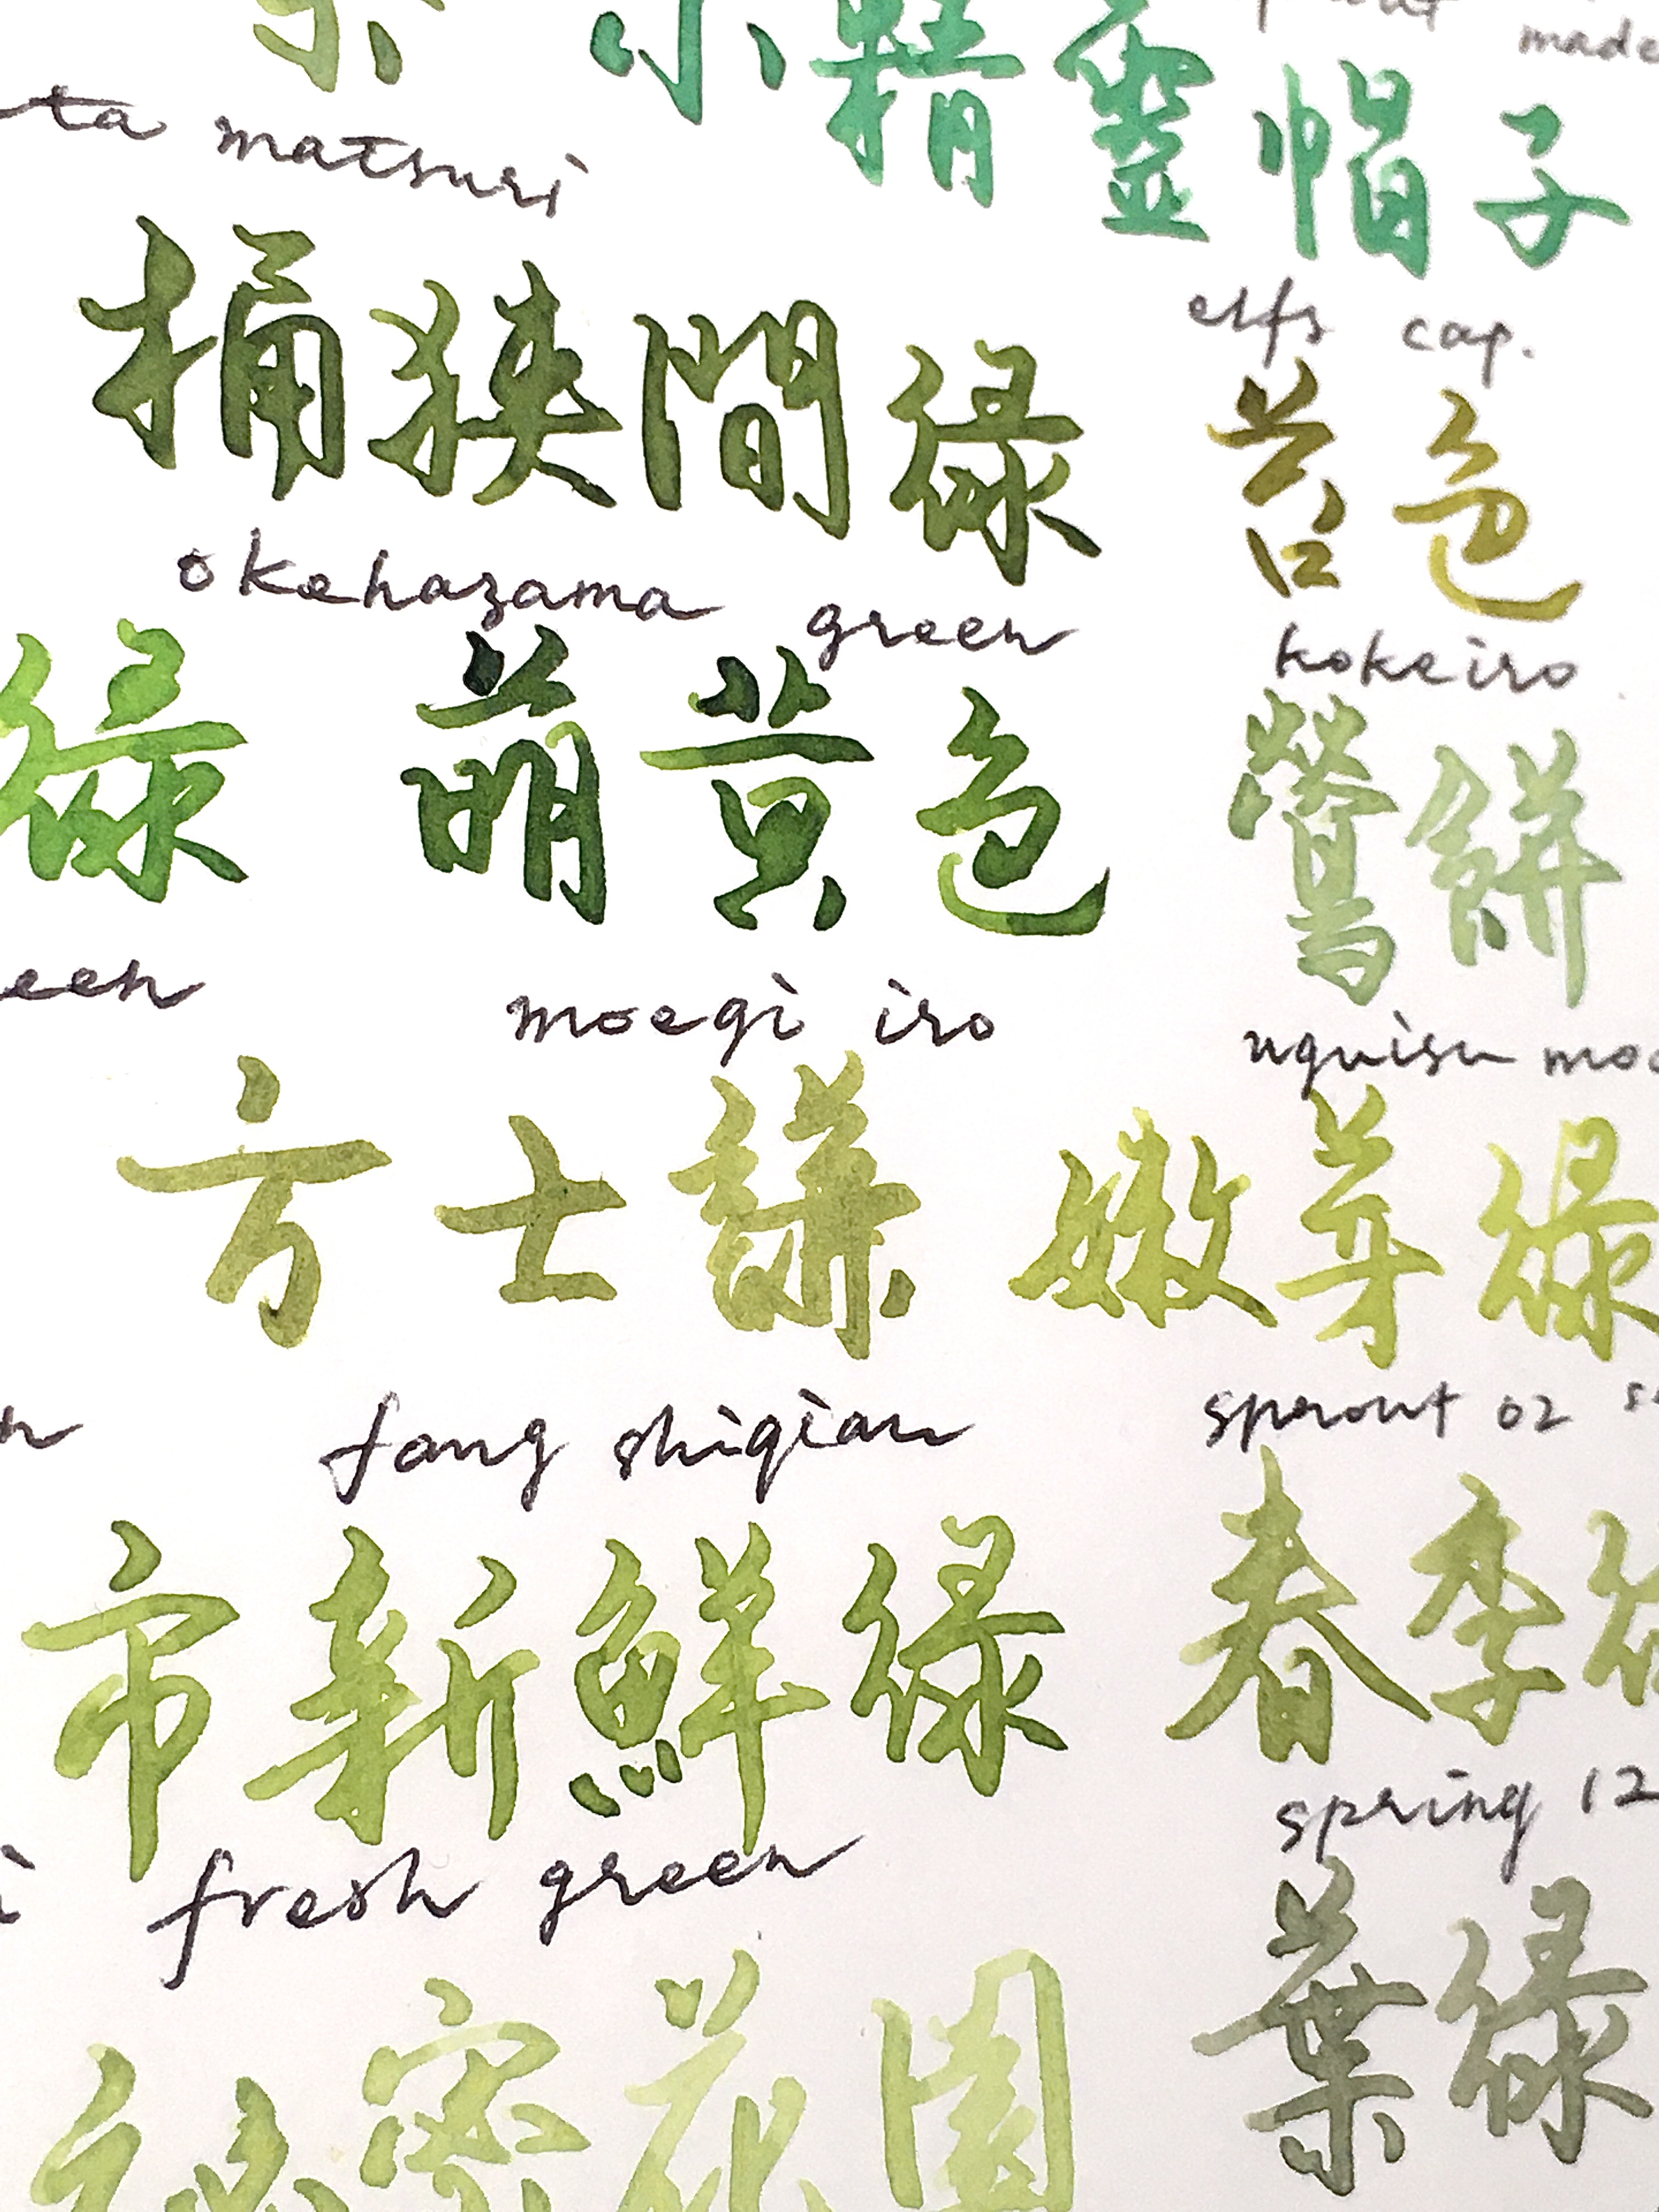 小精靈帽子
made
ta matsuri
elfs cap.
桶狹間綠
苔色
okehazama green
kokeiro
綠
萌黃色
鶯餅
een
moegi iro
uguisu mo
方士謙
嫩芽綠
fang shiqian
sprout 02
市新鮮綠
春季
fresh green
spring 12
葉綠
秘密花園